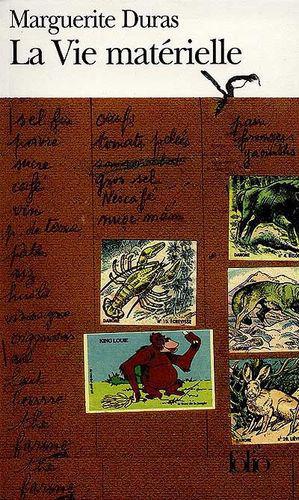 Marguerite Duras
La Vie matérielle
sel fin
poivre
sucre
café
vin
p. de terre
pates
riz
huile
vinaigre
oignons
ail
lait
beurre
thé
farine
thé
farine
oeufs
tomates pelées
gros sel
Nescafé
nuoc mam
pain
fromages
yaourths
DANONE
Nº 15. ÉCREVISSE
DANONE
DANONE
KING LOUIE
folio